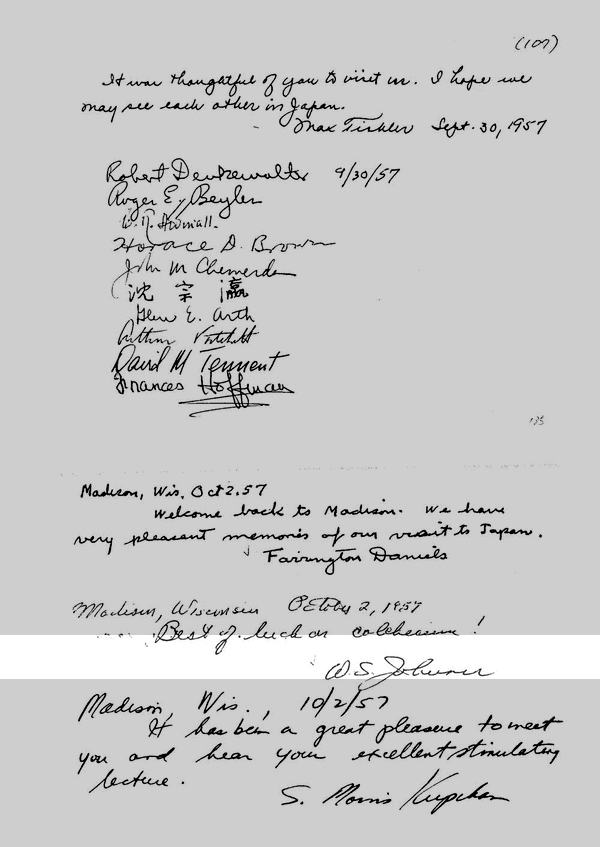 (107)
It was thoughtful of you to visit us. I hope we
may see each other in Japan.
Max Tishler Sept. 30, 1957
Robert Denkewalter 9/30/57
Roger E. Beyler
Horace D. Brown
John M Chemerda
沈 宗 瀛
Glen E. Arth
Arthur
David M Tennent
Frances Hoffman
135
Madison, Wis. Oct 2. 57
Welcome back to Madison. We have
very pleasant memories of our visit to Japan.
Farrington Daniels
Madison, Wisconsin October 2, 1957
Best of luck on colchicine!
W. S. Johnson
Madison, Wis., 10/2/57
It has been a great pleasure to meet
you and hear your excellent stimulating
lecture.
S. Morris Kupchan